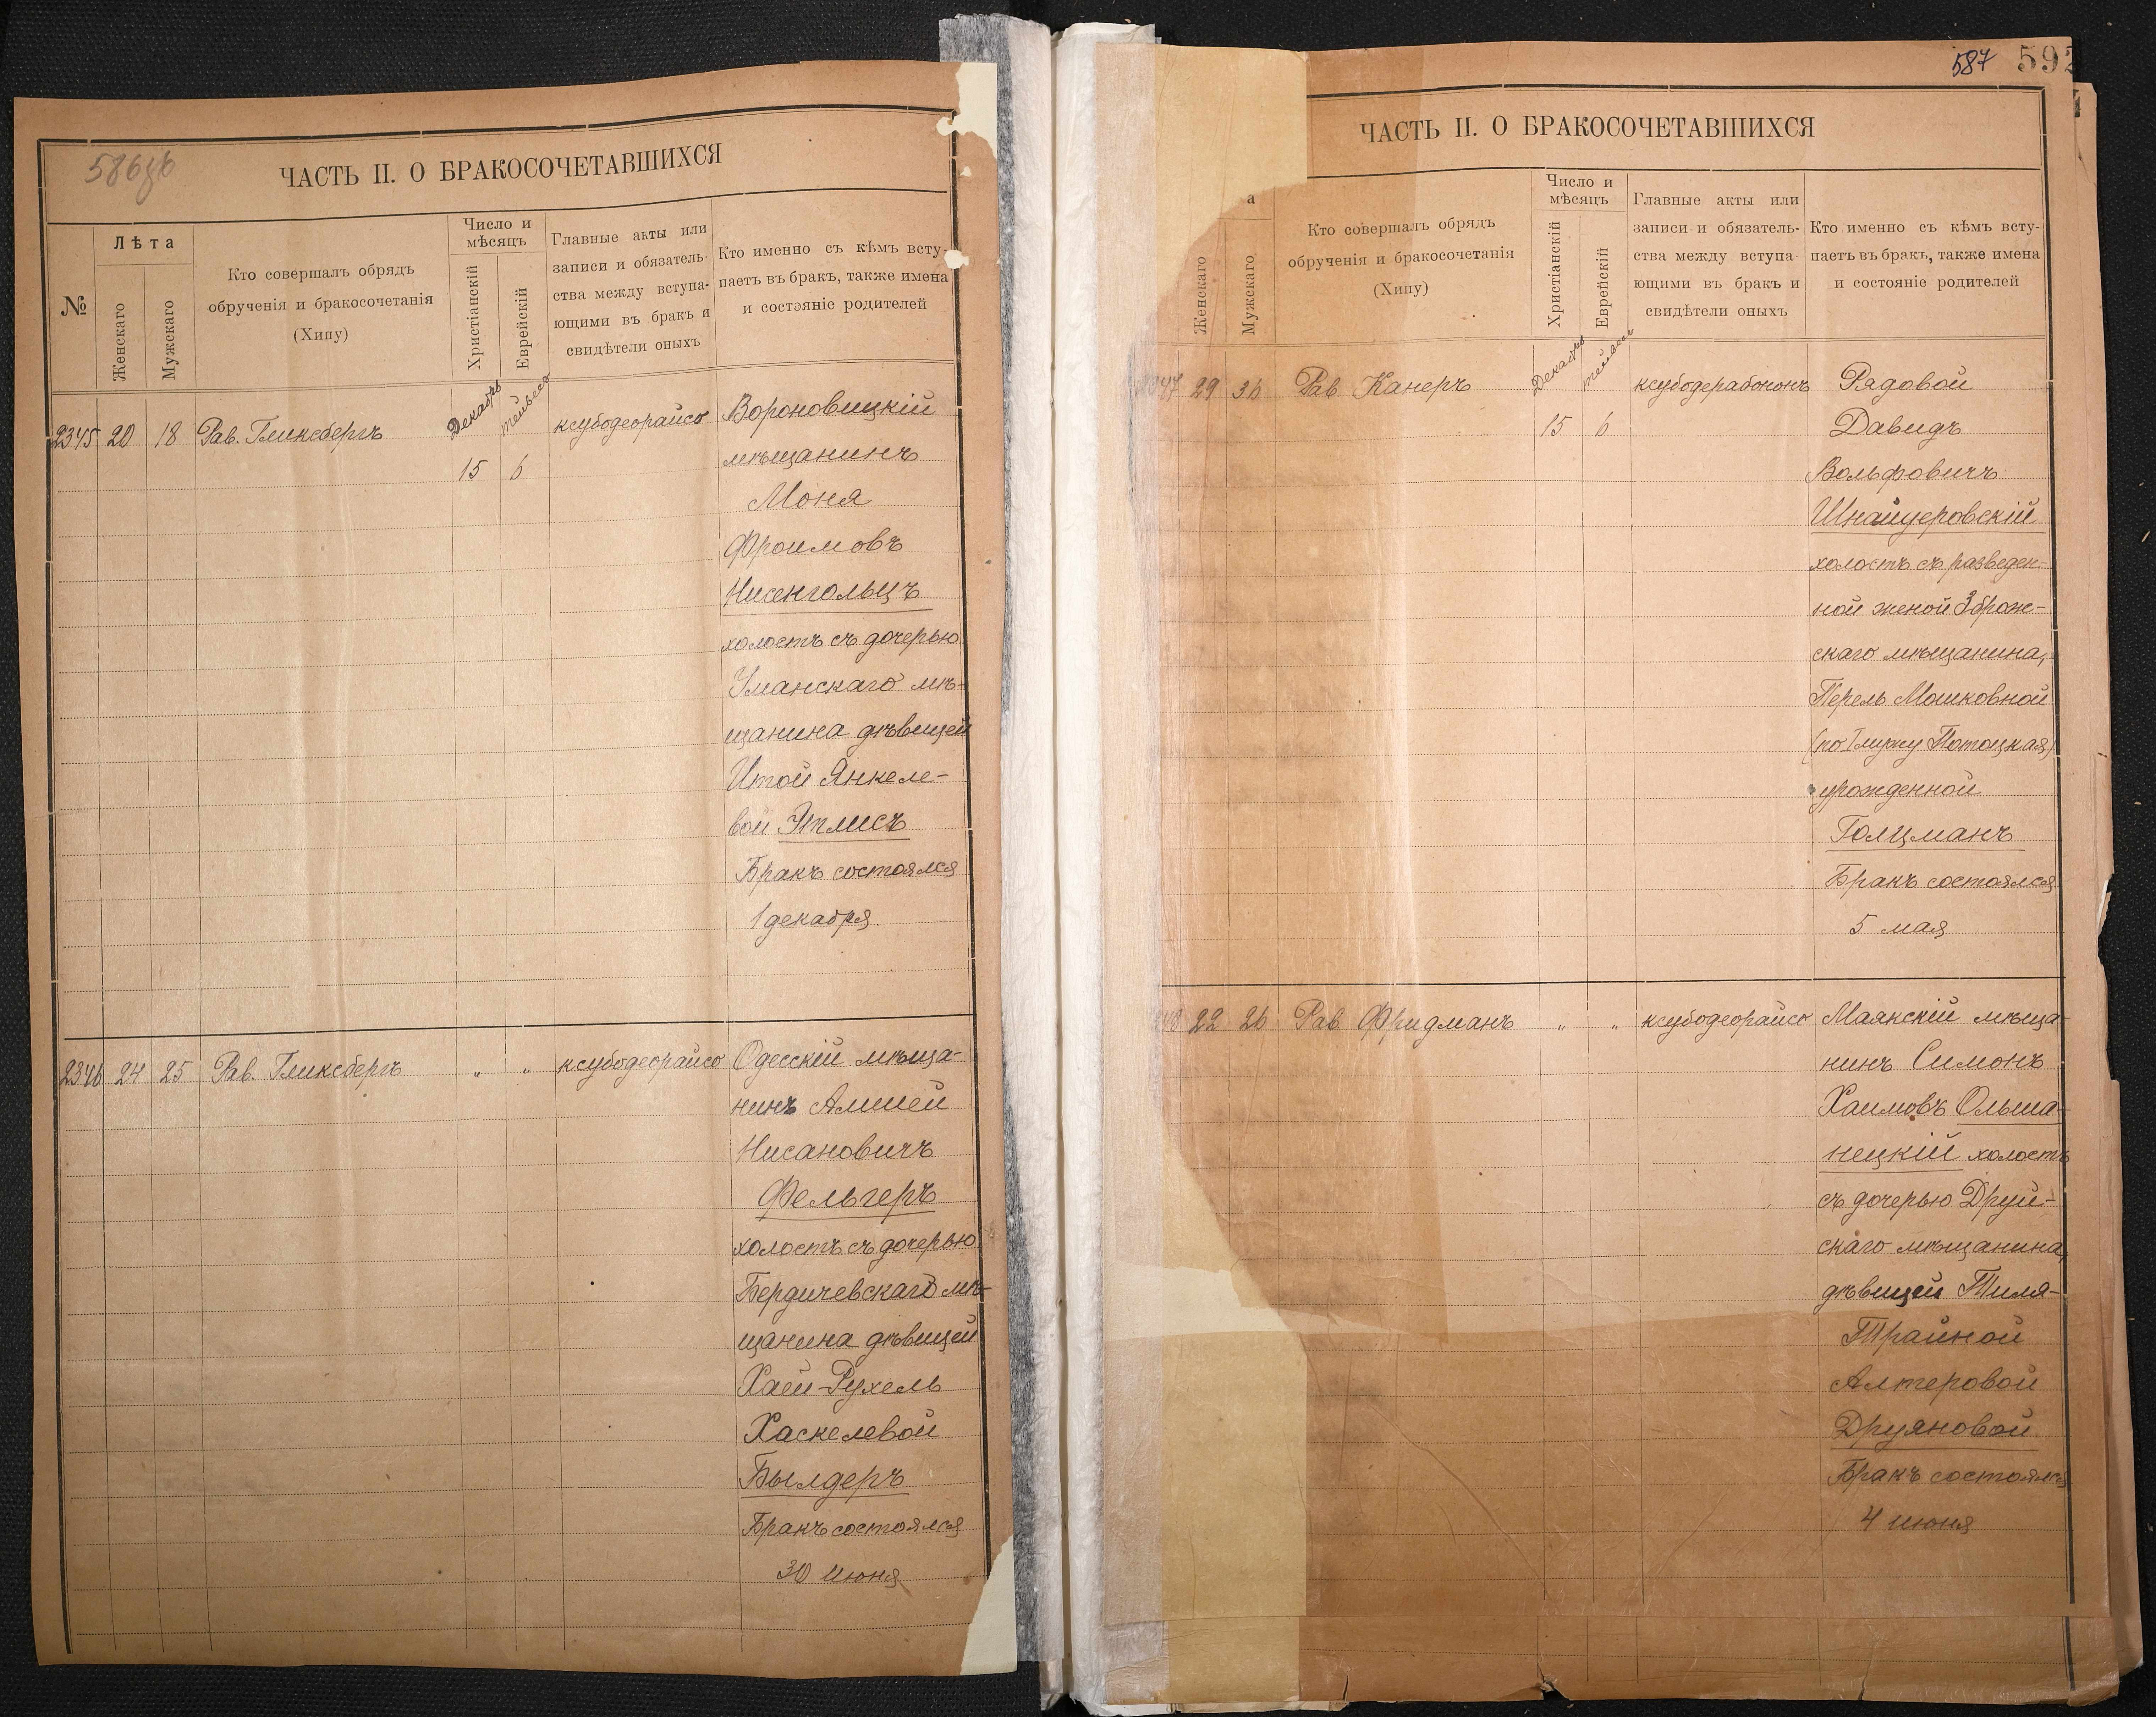 586об
ЧАСТЬ II. О БРАКОСОЧЕТАВШИХСЯ
№
Лѣта
Женскаго
Мужскаго
Кто совершалъ обрядъ
обрученія и бракосочетанія
(Хипу)
Число и
мѣсяцъ
Христіанскій
Еврейскій
Главные акты или
записи и обязатель-
ства между вступа-
ющими въ бракъ и
свидѣтели оныхъ
Кто именно съ кѣмъ всту-
паетъ въ бракъ, также имена
и состояніе родителей
2345 20 18 Рав. Гликсбергъ Декабрь тейвесъ ксубодеорайсо Вороновицкій
15 6 мѣщанинъ
Моня
Фроимовъ
Нисенгольцъ
холостъ съ дочерью
Уманскаго мѣ-
щанина дѣвицей
Итой Янкеле-
вой Этлисъ
Бракъ состоялся
1 декабря
2346 24 25 Рав. Гликсбергъ " " ксубодеорайсо Одесскій мѣща-
нинъ Алшей
Нисановичъ
Фельгеръ
холостъ съ дочерью
Бердичевскаго мѣ-
щанина дѣвицей
Хаей-Рухель
Хаскелевой
Былдеръ
Бракъ состоялся
30 июня
587 592
ЧАСТЬ II. О БРАКОСОЧЕТАВШИХСЯ
а
Женскаго
Мужскаго
Кто совершалъ обрядъ
обрученія и бракосочетанія
(Хипу)
Число и
мѣсяцъ
Христіанскій
Еврейскій
Главные акты или
записи и обязатель-
ства между вступа-
ющими въ бракъ и
свидѣтели оныхъ
Кто именно съ кѣмъ всту-
паетъ въ бракъ, также имена
и состояніе родителей
2347 29 36 Рав. Канеръ Декабрь тейвесъ ксубодерабононъ Рядовой
15 6 Давидъ
Вольфовичъ
Шнайдеровскій
холостъ съ разведен-
ной женой Зброж-
скаго мѣщанина,
Перель Мошковной
(по I мужу Потоцкая)
урожденной
Голцманъ
Бракъ состоялся
5 мая
22 26 Рав. Фридманъ " " ксубодеорайсо Маякскій мѣща-
нинъ Симонъ
Хаимовъ Ольша-
нецкій холостъ
съ дочерью Друй-
скаго мѣщанина,
дѣвицей Тиля-
Трайной
Алтеровой
Друяновой
Бракъ состоялся
4 июня